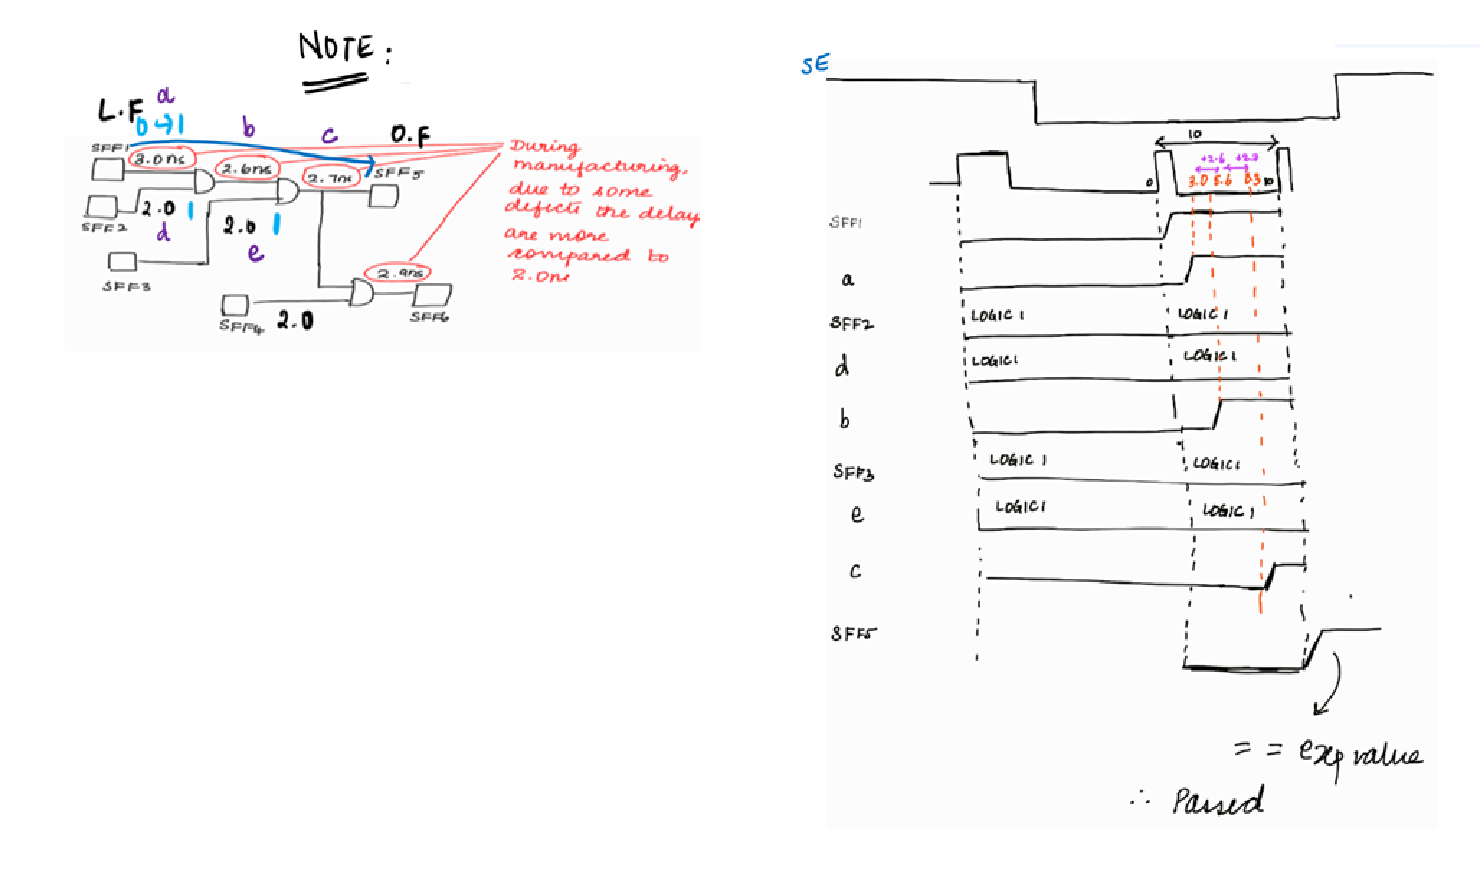 NOTE :
L.F a
0→1 b c O.F
SFF1
3.0ns
2.6ns
2.7n SFF5
SFF2 2.0 1
d 2.0 1
e
SFF3
SFF4 2.0
2.9ns
SFF6
During
manufacturing,
due to some
defects the delay
are more
compared to
2.0ns
SE
10
+2.6
0 3.0 5.6 8.3 10
SFF1
a
SFF2 LOGIC 1 LOGIC 1
d LOGIC 1 LOGIC 1
b
SFF3 LOGIC 1 LOGIC 1
e LOGIC 1 LOGIC 1
c
SFF5
= = exp value
∴ Passed